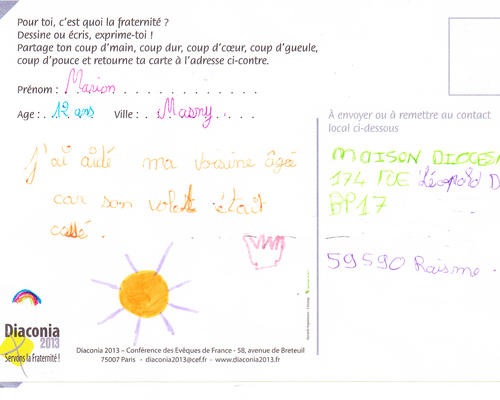 Pour toi, c'est quoi la fraternité ?
Dessine ou écris, exprime-toi !
Partage ton coup d'main, coup dur, coup d'cœur, coup d'gueule,
coup d'pouce et retourne ta carte à l'adresse ci-contre.
Prénom : Marion
Age : 12 ans Ville : Masny
À envoyer ou à remettre au contact
local ci-dessous
j'ai aidé ma voisine âgé
car son volet était
cassé.
MAISON DIOCES
174 RUE Léopold D
BP17
59590 Raisme
Diaconia
2013
Servons la Fraternité !
Diaconia 2013 – Conférence des Evêques de France - 58, avenue de Breteuil
75007 Paris - diaconia2013@cef.fr - www.diaconia2013.fr